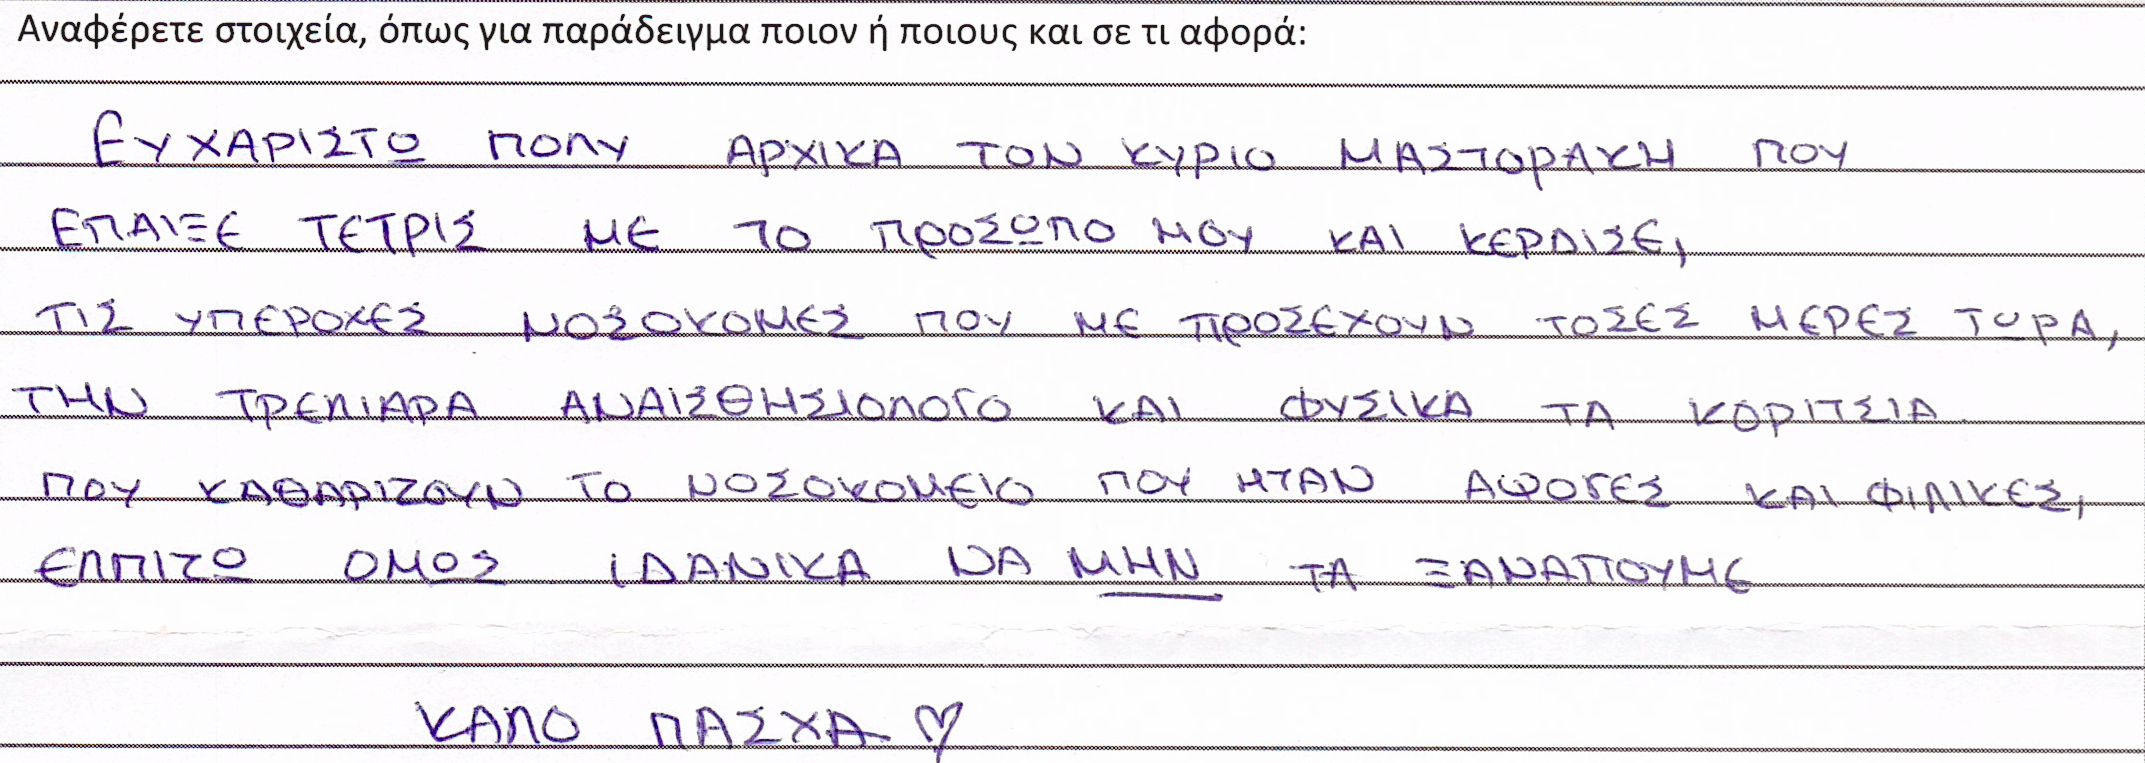 Αναφέρετε στοιχεία, όπως για παράδειγμα ποιον ή ποιους και σε τι αφορά:
ΕΥΧΑΡΙΣΤΩ ΠΟΛΥ ΑΡΧΙΚΑ ΤΟΝ ΚΥΡΙΟ ΜΑΣΤΟΡΑΚΗ ΠΟΥ
ΕΠΑΙΞΕ ΤΕΤΡΙΣ ΜΕ ΤΟ ΠΡΟΣΩΠΟ ΜΟΥ ΚΑΙ ΚΕΡΔΙΣΕ,
ΤΙΣ ΥΠΕΡΟΧΕΣ ΝΟΣΟΚΟΜΕΣ ΠΟΥ ΜΕ ΠΡΟΣΕΧΟΥΝ ΤΟΣΕΣ ΜΕΡΕΣ ΤΩΡΑ,
ΤΗΝ ΤΡΕΛΙΑΡΑ ΑΝΑΙΣΘΗΣΙΟΛΟΓΟ ΚΑΙ ΦΥΣΙΚΑ ΤΑ ΚΟΡΙΤΣΙΑ
ΠΟΥ ΚΑΘΑΡΙΖΟΥΝ ΤΟ ΝΟΣΟΚΟΜΕΙΟ ΠΟΥ ΗΤΑΝ ΑΨΟΓΕΣ ΚΑΙ ΦΙΛΙΚΕΣ,
ΕΛΠΙΖΩ ΟΜΩΣ ΙΔΑΝΙΚΑ ΝΑ ΜΗΝ ΤΑ ΞΑΝΑΠΟΥΜΕ
ΚΑΛΟ ΠΑΣΧΑ ♡